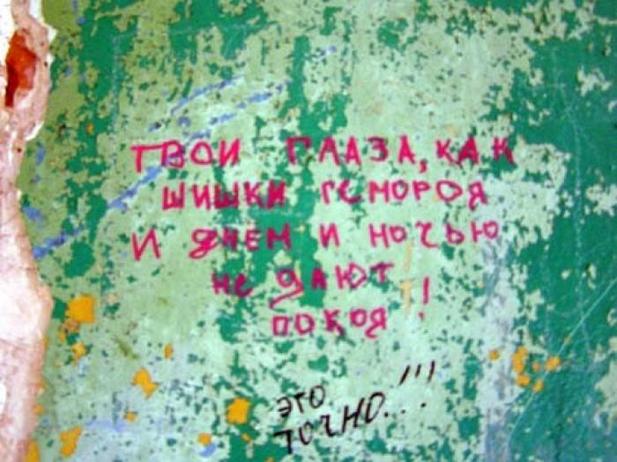 ТВОИ ГЛАЗА, КАК
ШИШКИ ГЕМОРОЯ
И ДНЕМ И НОЧЬЮ
НЕ ДАЮТ
ПОКОЯ!
ЭТО
ТОЧНО..!!!